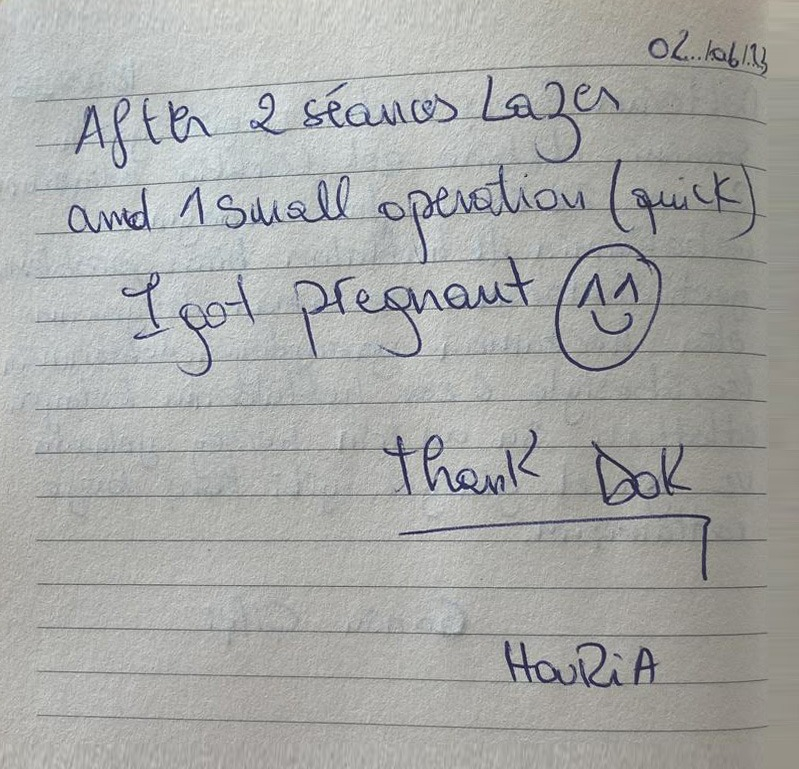 After 2 séances Lazer
and 1 small operation (quick)
I got pregnant
thank Dok
HouRiA